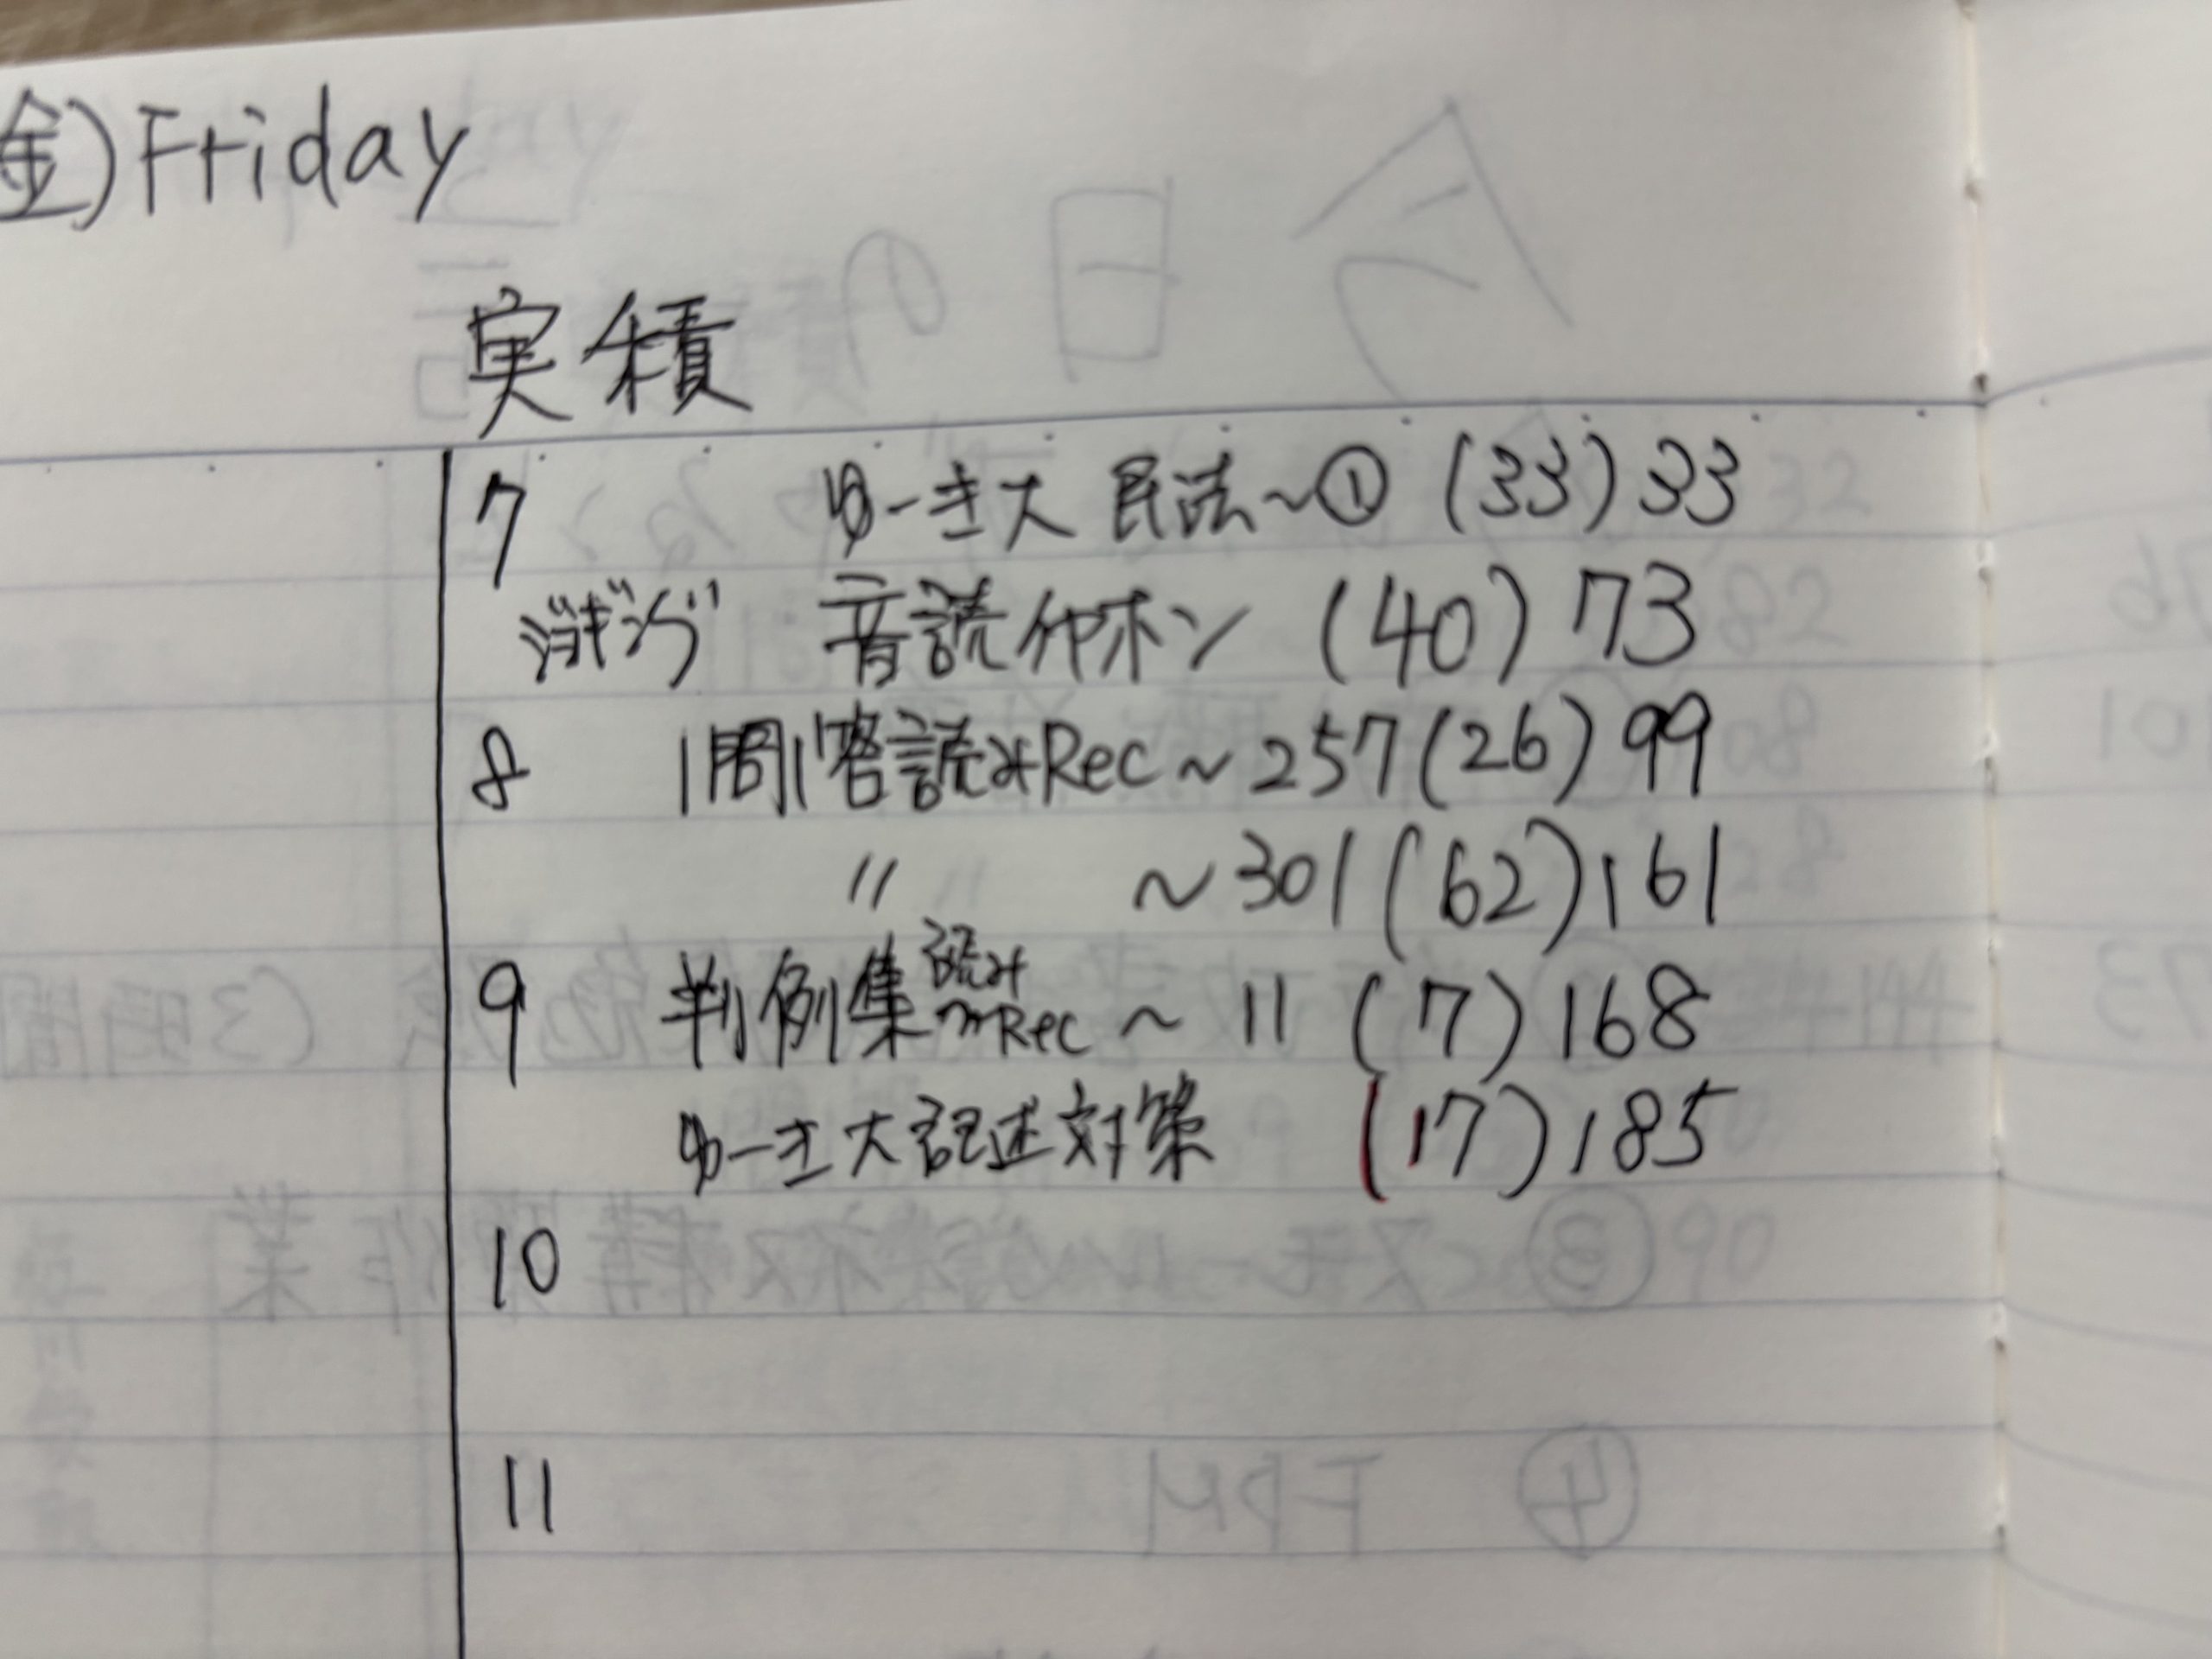 金)Friday
実積
7 ゆーき大 民法~① (33) 33
ジョギング 音読イヤホン (40) 73
8 1問1答読みRec~257(26) 99
〃 ~301(62) 161
9 判例集読みRec ~ 11 (7) 168
ゆーき大記述対策 (17) 185
10
11